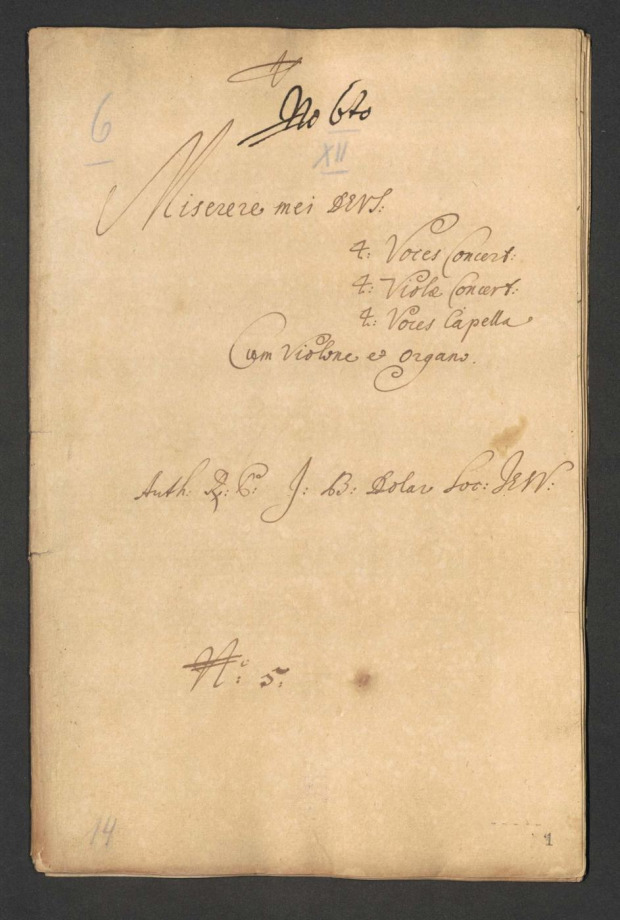 No 6to
6
XII
Miserere mei DEUS:
4: Voces Concert:
4: Violæ Concert:
4: Voces Capella
Cum Violone et Organo.
Auth: R: P: J: B: Dolar Soc: JESU:
N: 5:
14
1